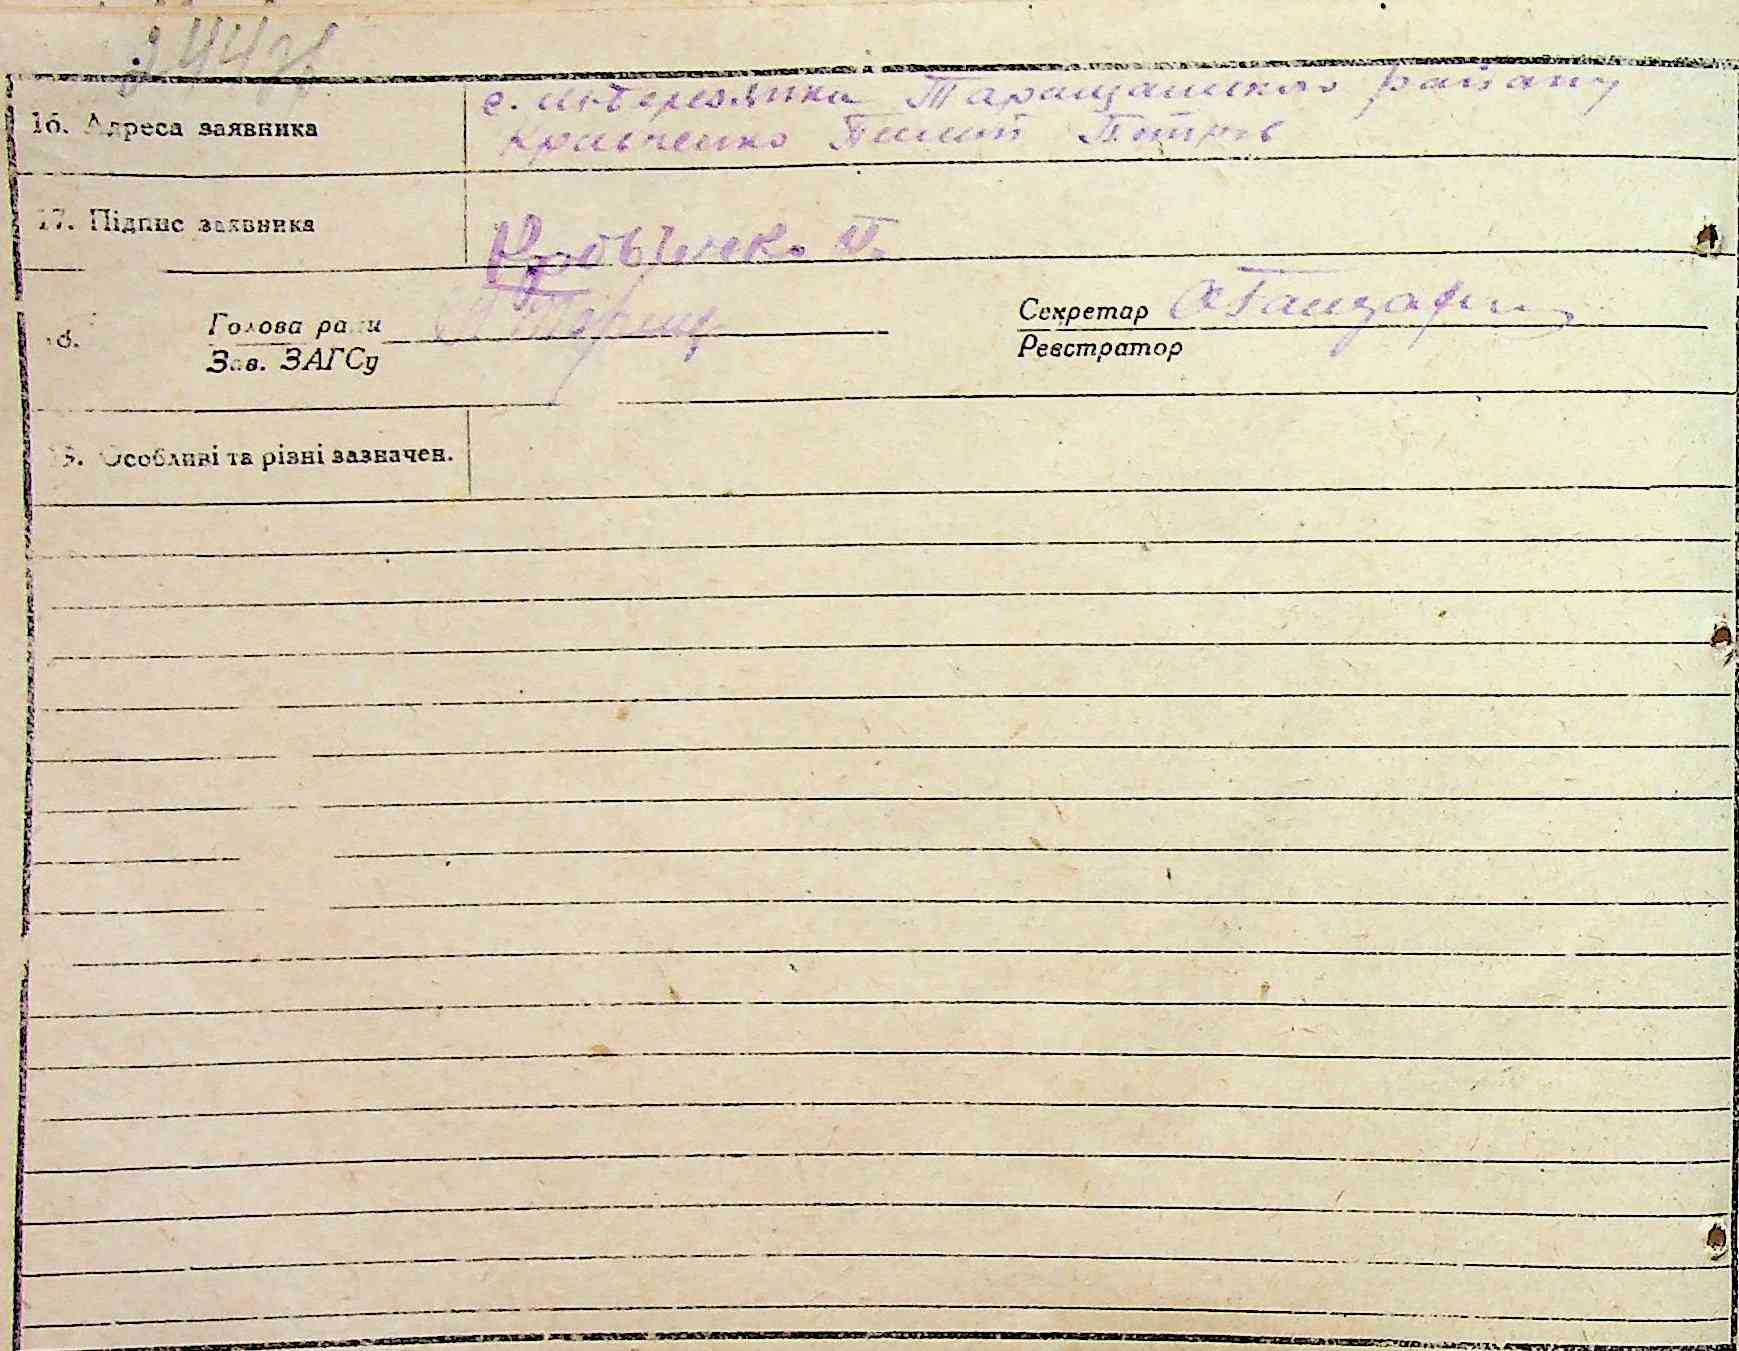 16. Адреса заявника
с. Таращанского району
Кравченко Пилип Петров
17. Підпис заявника
Кравченко П.
18.
Голова ради
Зав. ЗАГСу
Секретар
Реєстратор
19. Особливі та різні зазначен.